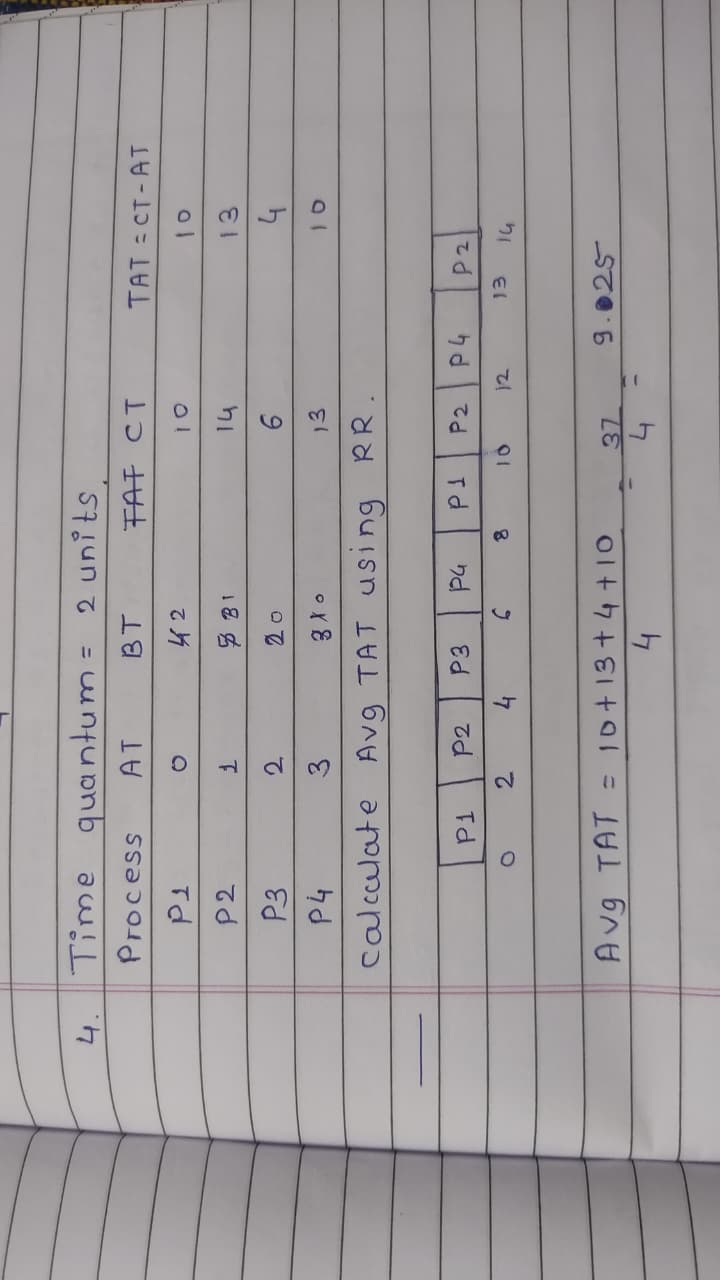 4. Time quantum = 2 units.
Process AT BT TAT CT TAT = CT - AT
P1 0 4 2 10 10
P2 1 5 3 1 14 13
P3 2 2 0 6 4
P4 3 3 1 0 13 10
Calculate Avg TAT using RR.
P1 P2 P3 P4 P1 P2 P4 P2
0 2 4 6 8 10 12 13 14
Avg TAT = 10 + 13 + 4 + 10 = 37 = 9.025
4 4